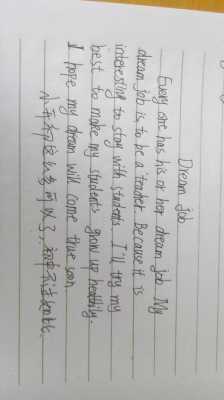 Dream job
Every one has his or her dream job. My
dream job is to be a teacher. Because it is
interesting to stay with students. I'll try my
best to make my students grow up healthily.
I hope my dream will come true soon.